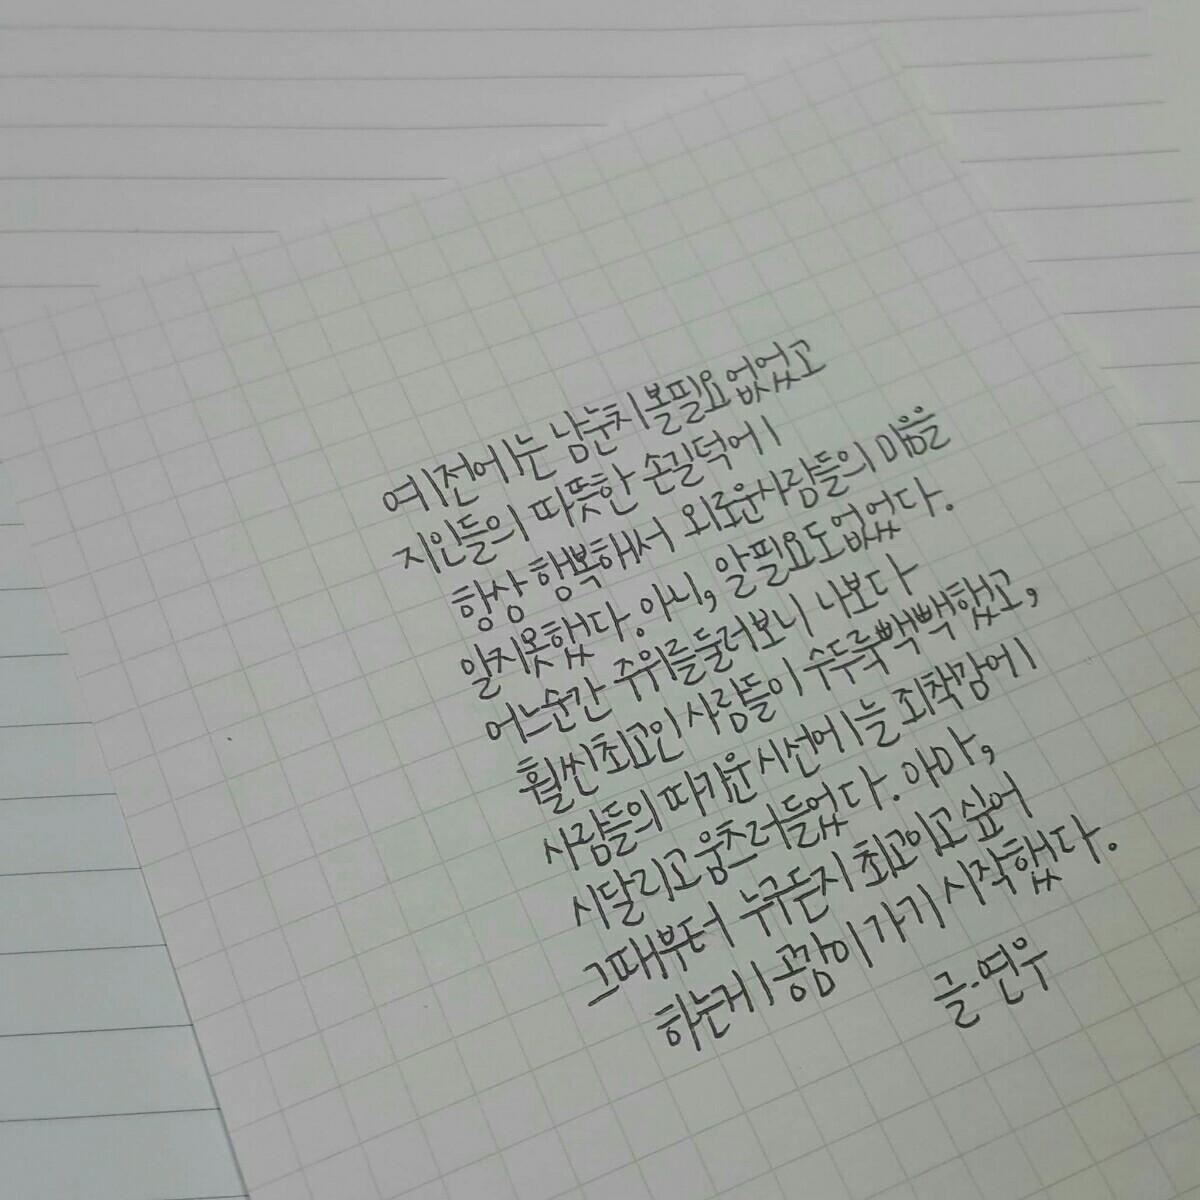 예전에는 남눈치 볼필요 없었고
지인들의 따뜻한 손길덕에
항상 행복해서 외로운사람들의 마음을
알지못했다. 아니, 알필요도없었다.
어느순간 주위를둘러보니 나보다
훨씬최고인 사람들이 수두룩빽빽했고,
사람들의 따가운시선에는 죄책감에
시달리고움츠러들었다. 아마,
그때부터 누구든지 최고이고싶어
하는게 공감이 가기 시작했다.
글.연우